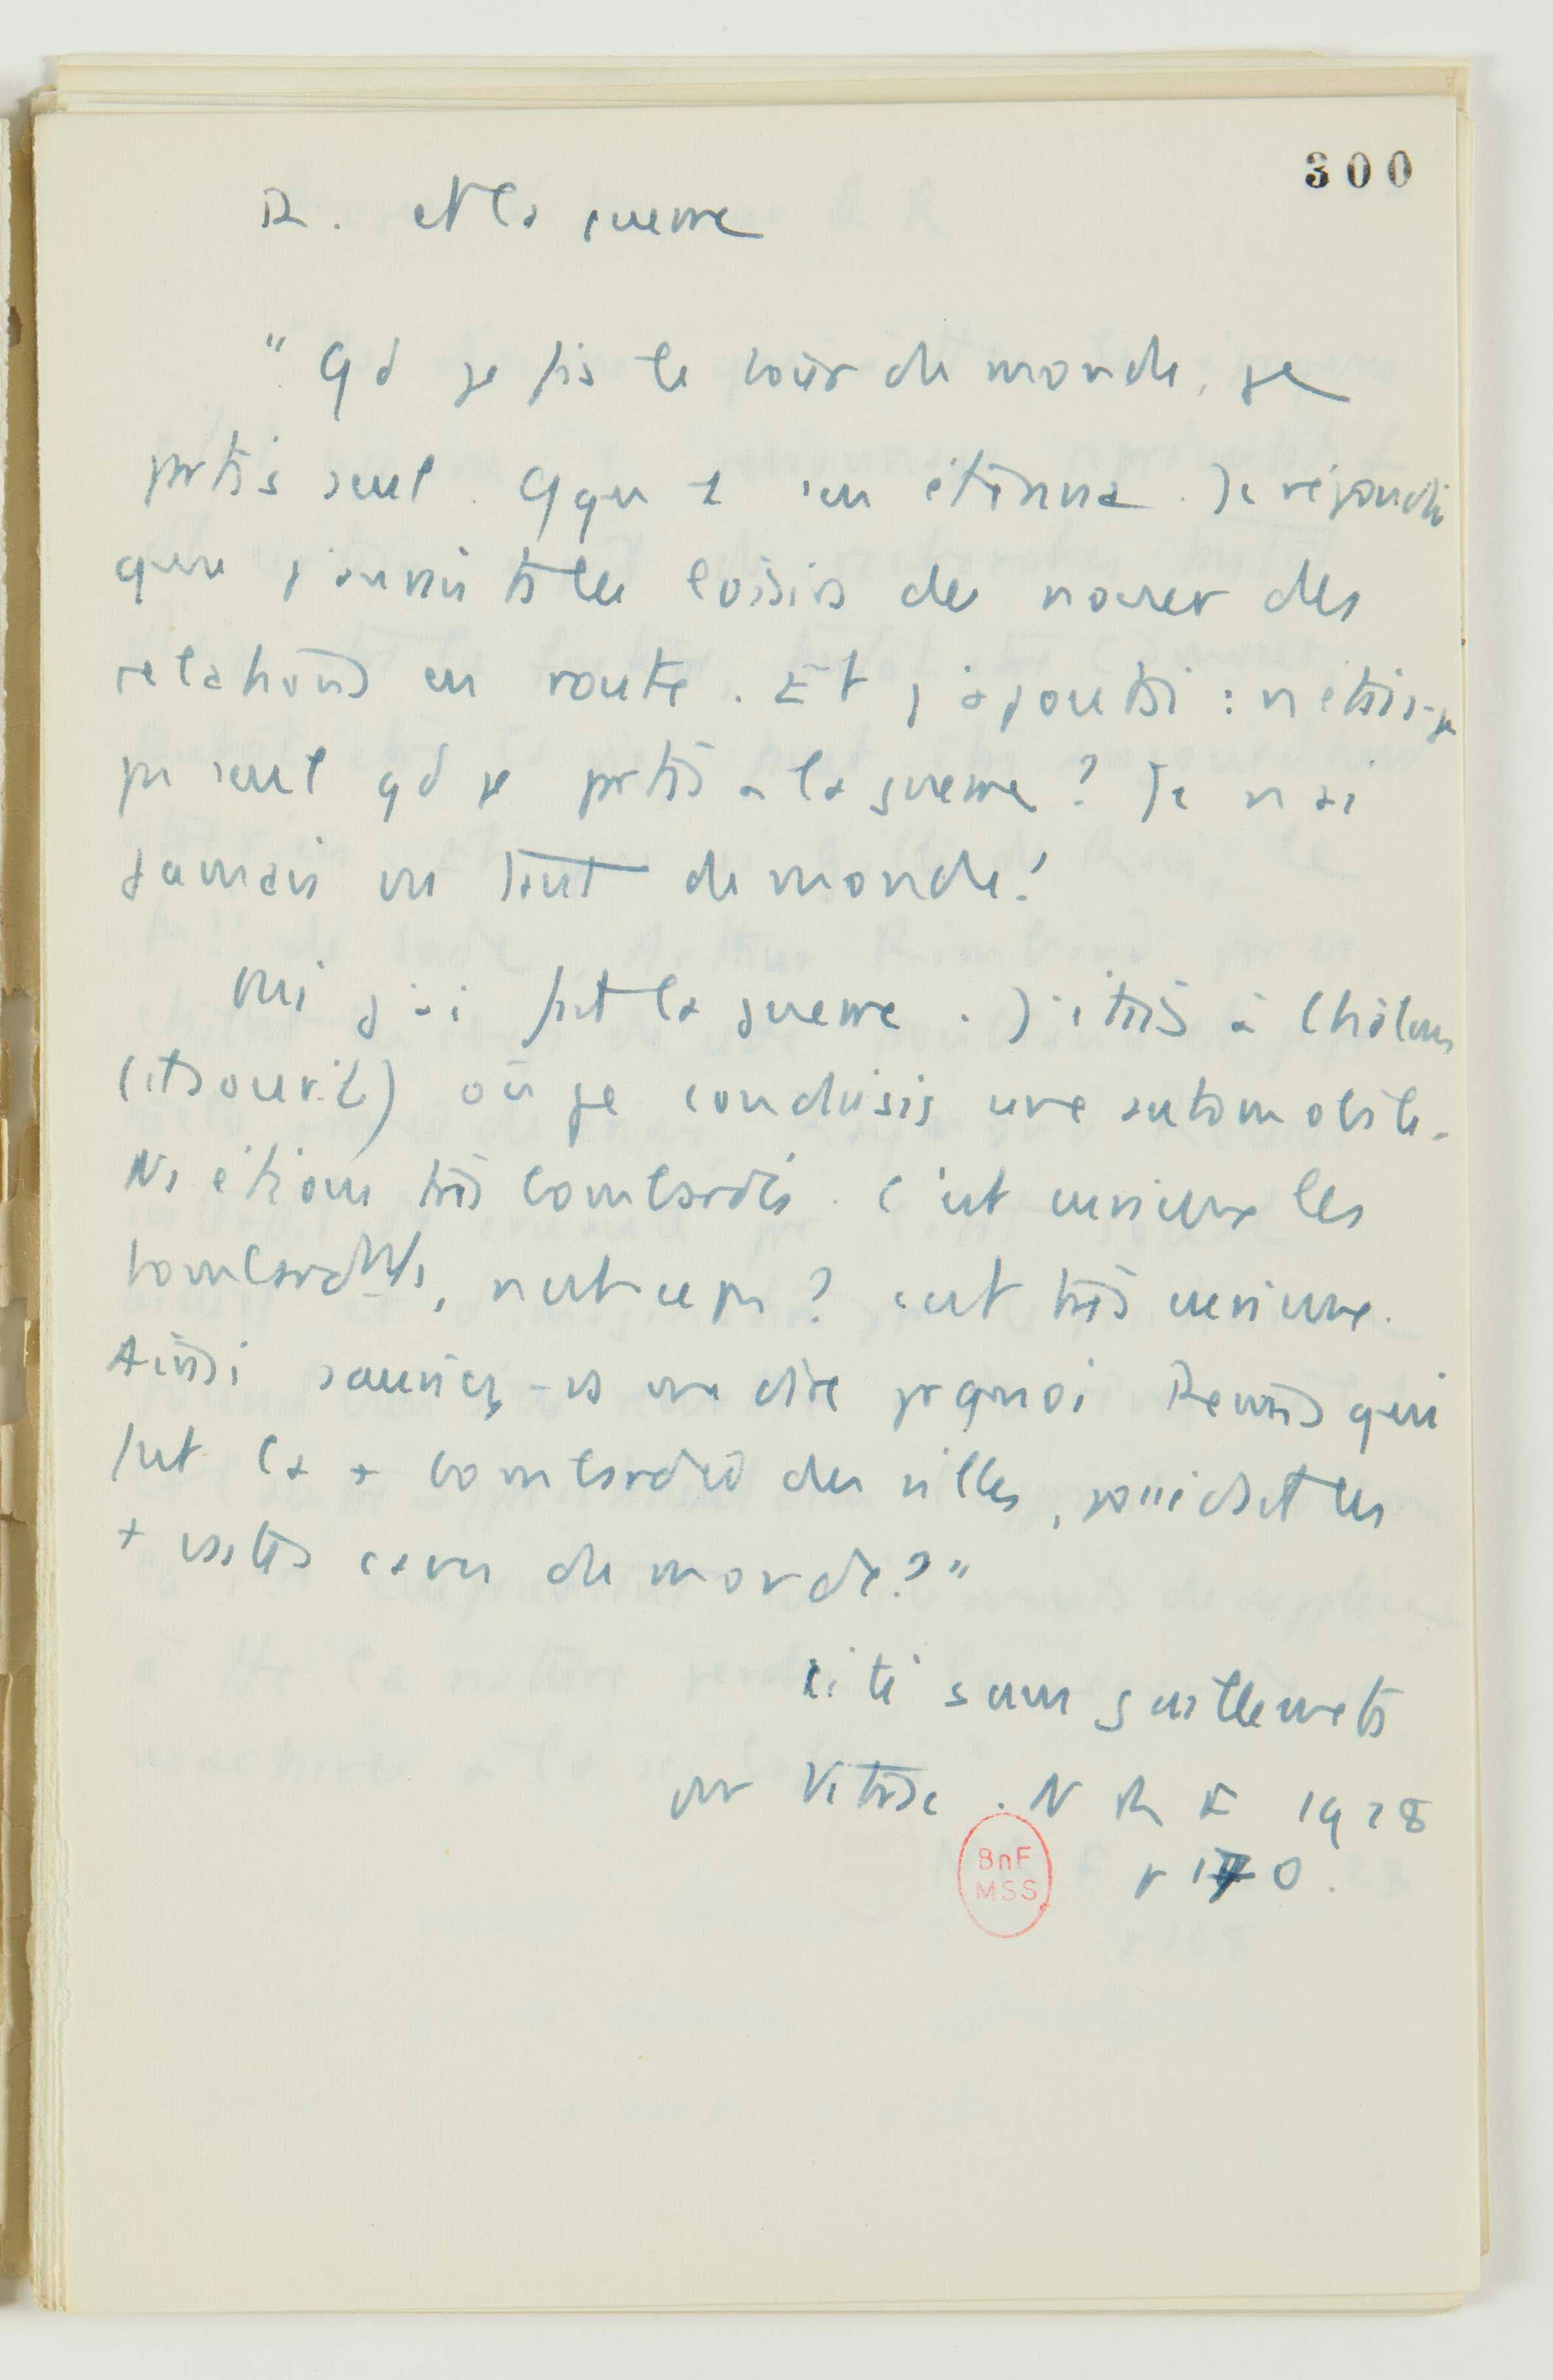 300
R. et la guerre
"Qd je fis le tour du monde, je
partis seul. Qqu'1 s'en étonna. Je répondis
que j'aurais ts les loisirs de nouer des
relations en route. Et j'ajoutai : n'étais-je
pas seul qd je partis à la guerre ? Je n'ai
jamais vu tant de monde !
Oui j'ai fait la guerre. J'étais à Châlons
où je conduisis une automobile.
Ns étions très bombardés. C'est curieux les
bombardmts, n'est-ce pas ? c'est très curieux.
Ainsi sauriez-vs me dire prquoi Reims qui
fut la + bombardée des villes, possédait les
+ vastes caves du monde ?"
Cité sans guillemets
par Vitrac. N R F 1928
p 170.
BnF
MSS